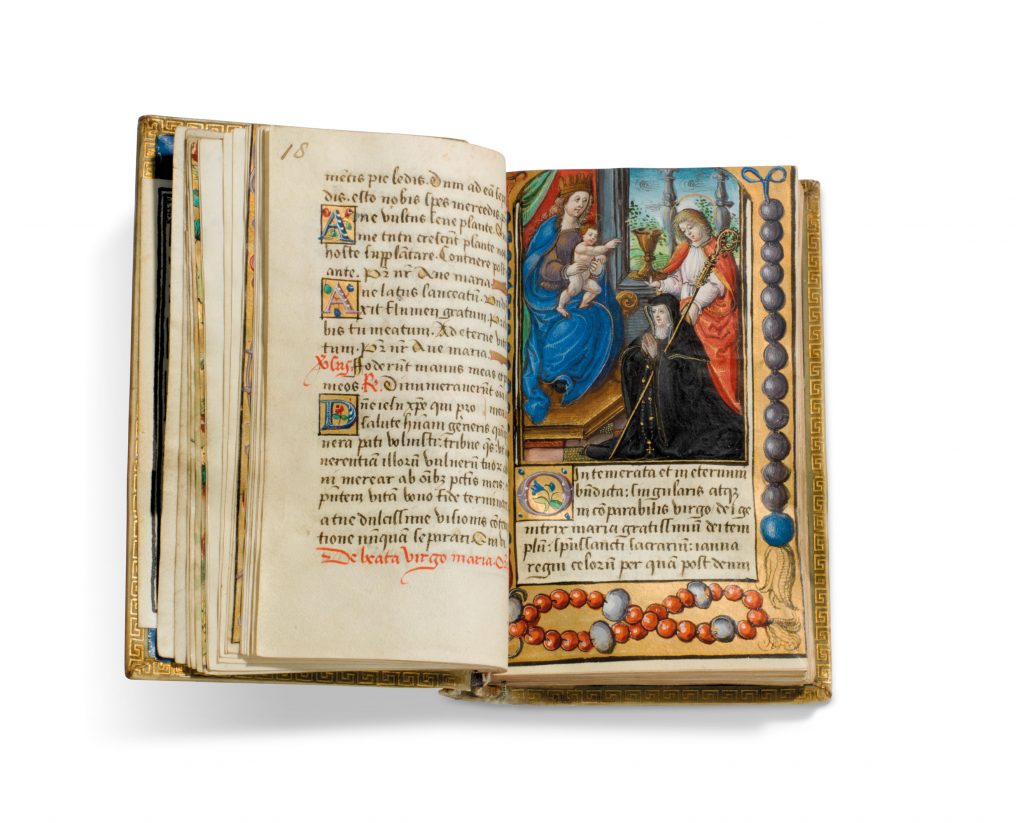 18
mētis pie ledis. Dum ad eā
dis. esto nobis spes mercedis
Ane vultus bene plante.
me tutū crescūt plante
hoste supplātare. Conterere post
ante. Pr̄ nr̄. Aue maria.
Aue latus lanceatū.
xit flumen gratum.
bis tu meatum. Ad eterne
tum. Pr̄ nr̄. Aue maria.
Foderūt manus meas et
meos. Re. Dinumeraverūt
Dn̄e iesu xp̄e qui pro
salute humani generis
nera pati voluisti: tribue qs̄:
verentiā illorū vulnerū tuor
ni merear ab oīb; pctis meis
pn̄tem vitā bono fide termina
a tue dulcissime visionis
tione nūquā separari.
De beata virgo maria.
O intemerata et in eternum
bn̄dicta: singularis atq;
in cōparabilis virgo dei ge
nitrix maria gratissimū dei tem
plū: spūssancti sacrariū: ianua
regni celorū per quā post deum